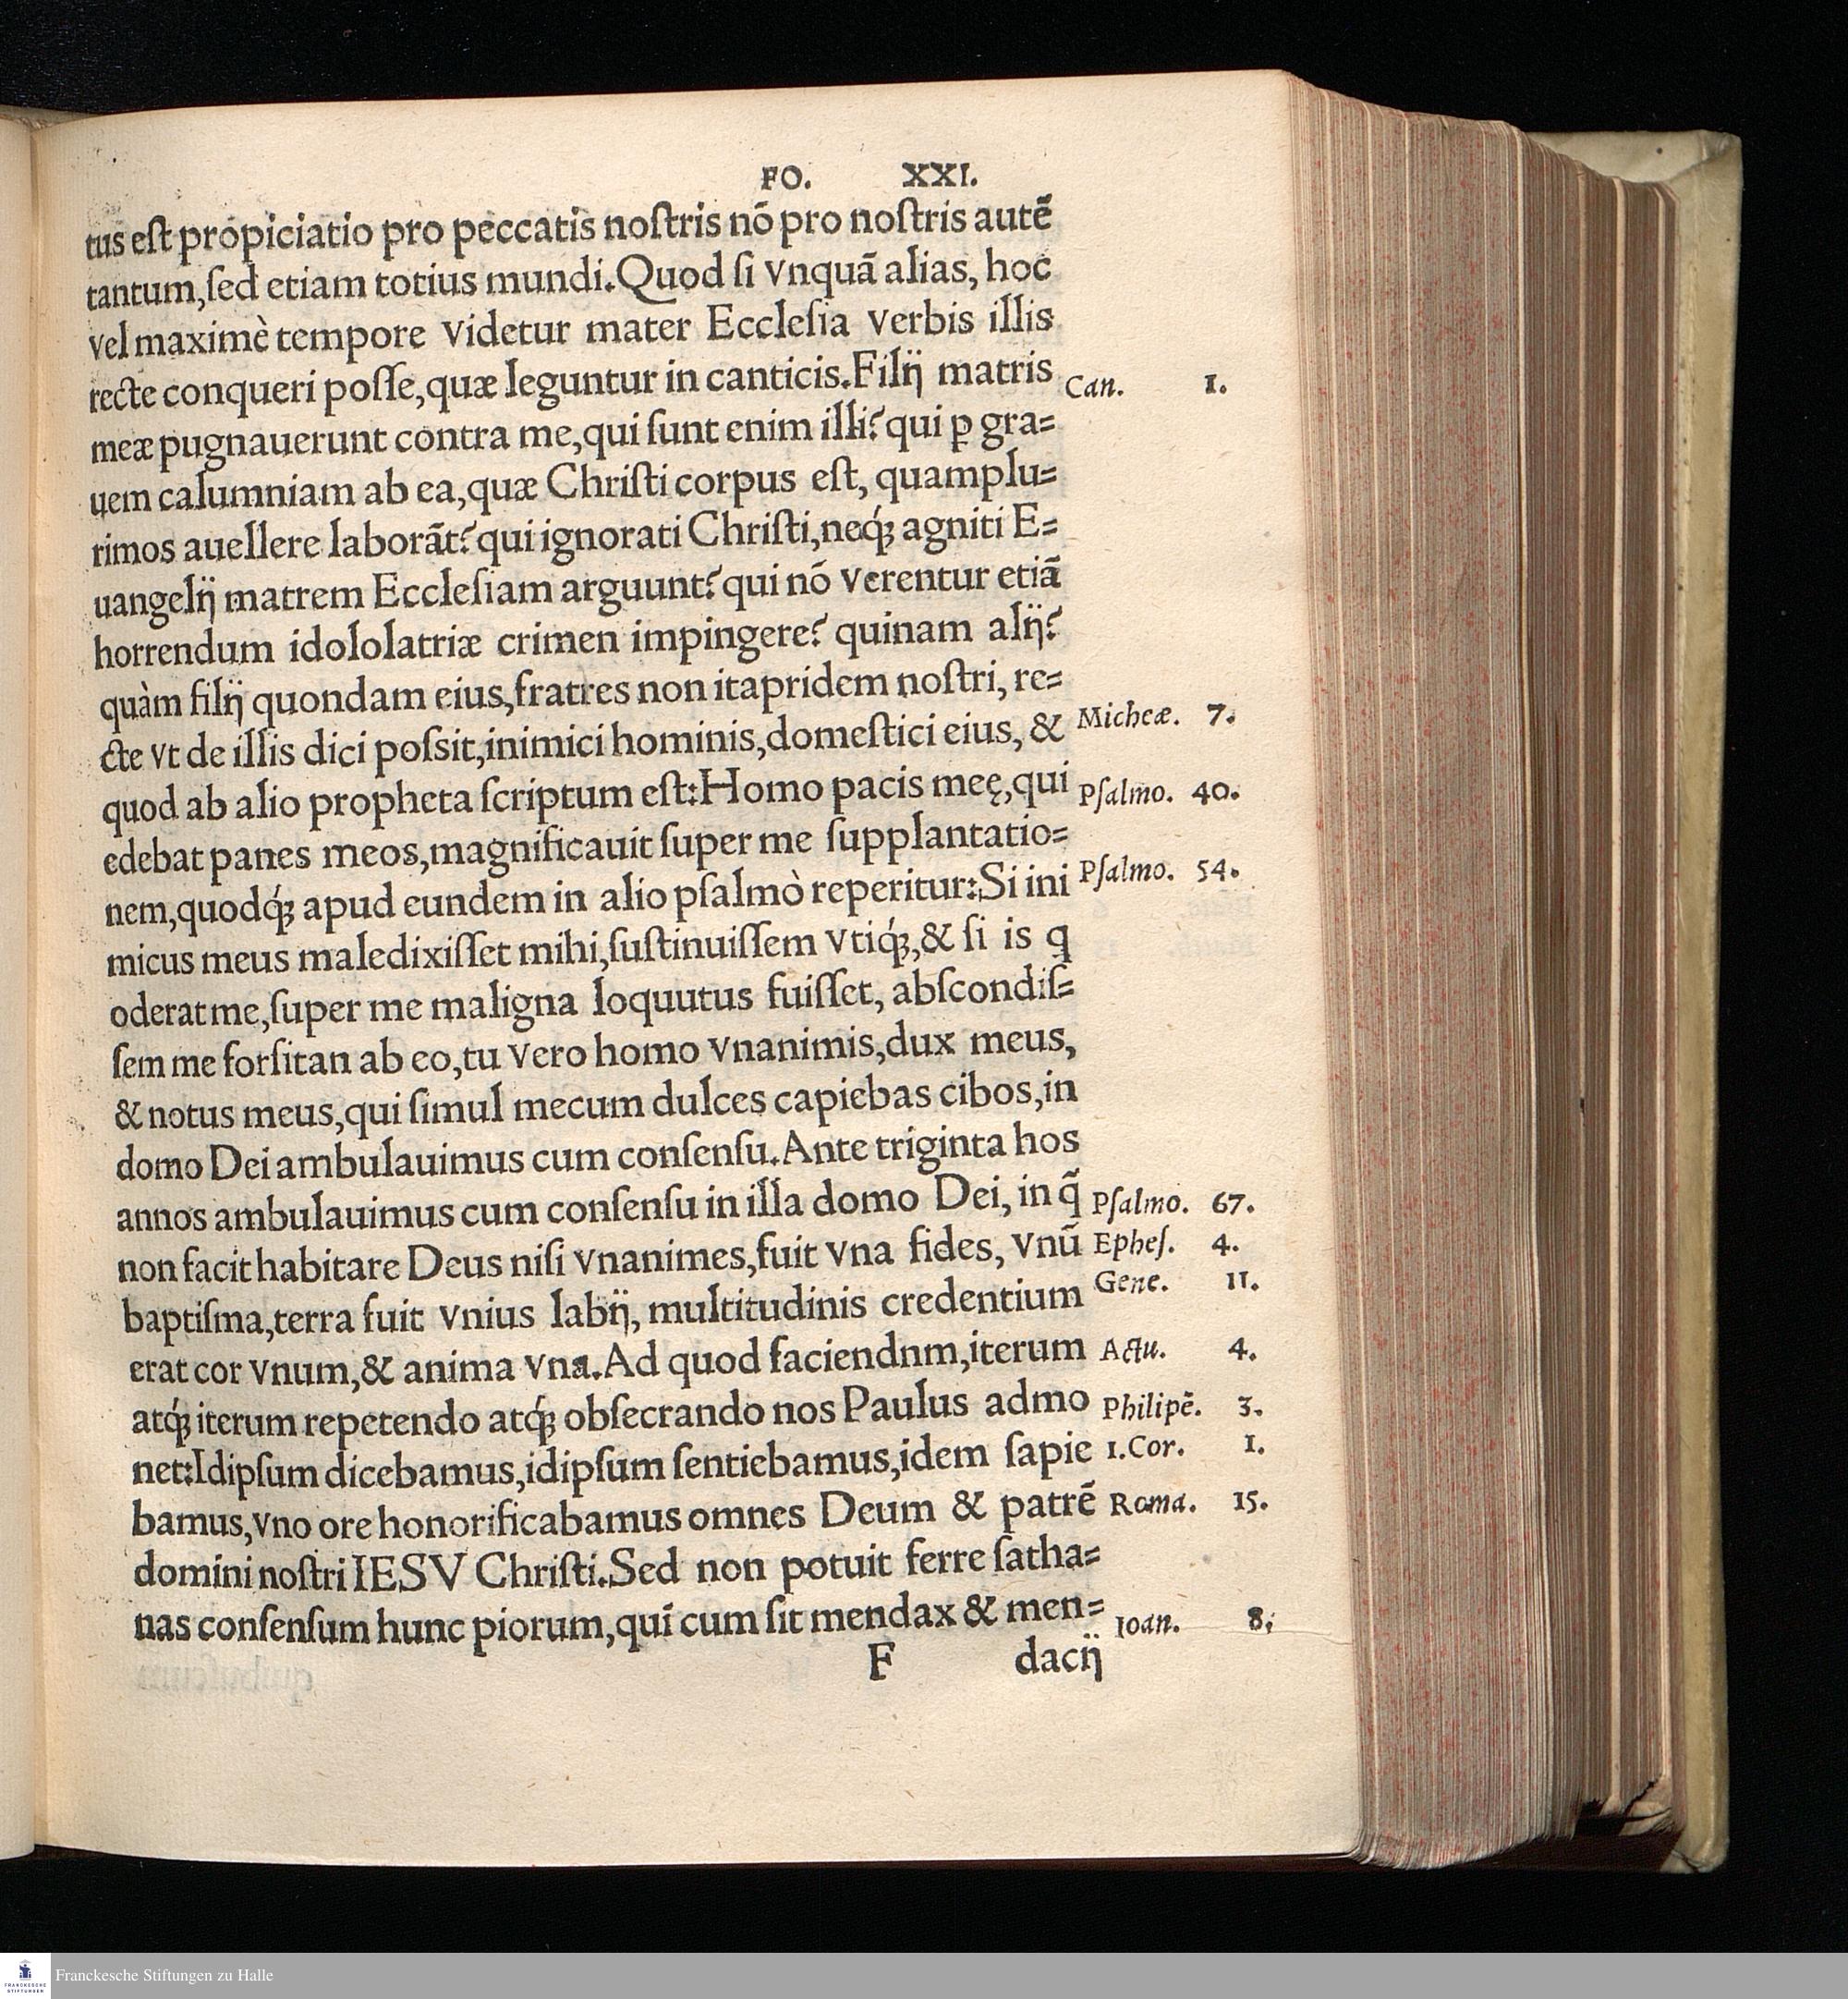 FO. XXI.
tus eſt propiciatio pro peccatis noſtris nõ pro noſtris autẽ
tantum,ſed etiam totius mundi.Quod ſi vnquã alias, hoc
vel maximè tempore videtur mater Eccleſia verbis illis
recte conqueri poſſe,quæ leguntur in canticis.Filij matris
Can. 1.
meæ pugnauerunt contra me,qui ſunt enim illi? qui ꝑ gra=
uem calumniam ab ea,quæ Chriſti corpus eſt, quamplu=
rimos auellere laborãt? qui ignorati Chriſti,neq́ꝫ agniti E=
uangelij matrem Eccleſiam arguunt? qui nõ verentur etiã
horrendum idololatriæ crimen impingere? quinam alij?
quàm filij quondam eius,fratres non itapridem noſtri, re=
cte vt de illis dici poſsit,inimici hominis,domeſtici eius, &
Micheæ. 7.
quod ab alio propheta ſcriptum eſt:Homo pacis meę,qui
Pſalmo. 40.
edebat panes meos,magnificauit ſuper me ſupplantatio=
nem,quodq́ꝫ apud eundem in alio pſalmò reperitur:Si ini
Pſalmo. 54.
micus meus maledixiſſet mihi,ſuſtinuiſſem vtiq́ꝫ,& ſi is q
oderat me,ſuper me maligna loquutus fuiſſet, abſcondiſ=
ſem me forſitan ab eo,tu vero homo vnanimis,dux meus,
& notus meus,qui ſimul mecum dulces capiebas cibos,in
domo Dei ambulauimus cum conſenſu.Ante triginta hos
annos ambulauimus cum conſenſu in illa domo Dei, in q̃
Pſalmo. 67.
non facit habitare Deus niſi vnanimes,fuit vna fides, vnũ
Epheſ. 4.
baptiſma,terra fuit vnius labij, multitudinis credentium
Gene. 11.
erat cor vnum,& anima vna.Ad quod faciendnm,iterum
Actu. 4.
atq́ꝫ iterum repetendo atq́ꝫ obſecrando nos Paulus admo
Philipẽ. 3.
net:Idipſum dicebamus,idipſum ſentiebamus,idem ſapie
1.Cor. 1.
bamus,vno ore honorificabamus omnes Deum & patrẽ
Roma. 15.
domini noſtri IESV Chriſti.Sed non potuit ferre ſatha=
nas conſenſum hunc piorum,qui cum ſit mendax & men=
Ioan. 8.
F dacij
Franckesche Stiftungen zu Halle
FRANCKESCHE
STIFTUNGEN